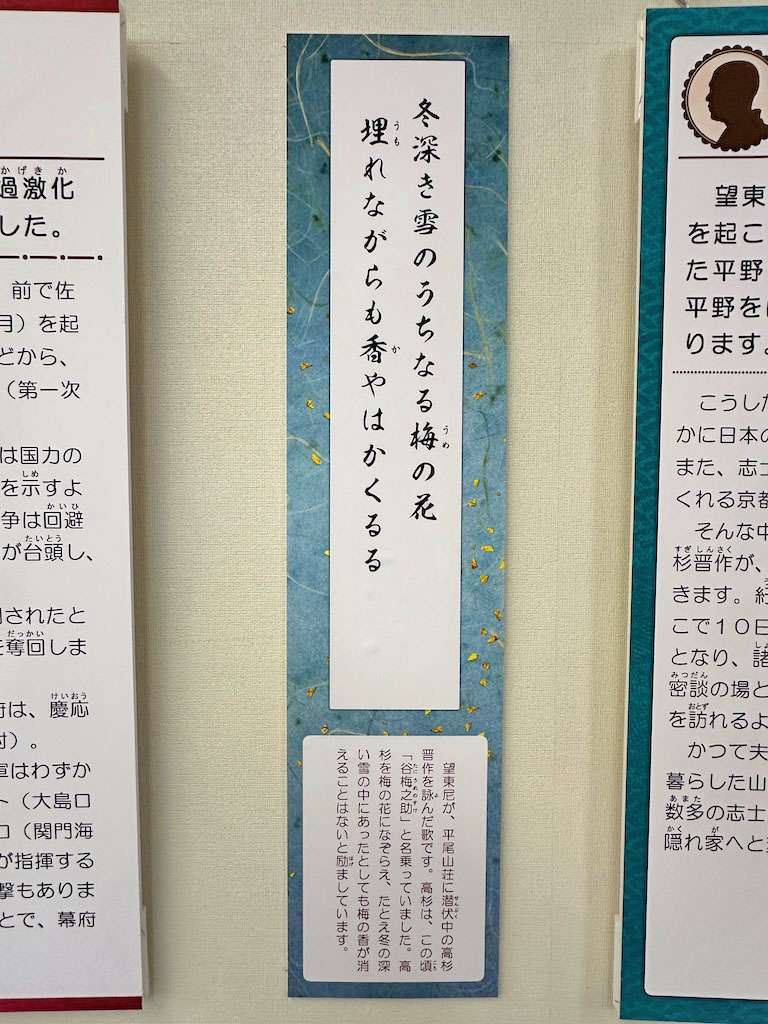 かげきか
過激化
した。
前で佐
月）を起
どから、
（第一次
は国力の
しめ
を示すよ
かいひ
争は回避
たいとう
が台頭し、
されたと
だっかい
奪回しま
けいおう
府は、慶応
）。
軍はわずか
ト（大島口
口（関門海
が指揮する
撃もありま
とで、幕府
冬深き雪のうちなる梅の花
うめ
埋れながらも香やはかくるる
うも
か
望東尼が、平尾山荘に潜伏中の高杉
せんぷく
晋作を詠んだ歌です。高杉は、この頃
よ
ころ
「谷梅之助」と名乗っていました。高
たにうめのすけ
杉を梅の花になぞらえ、たとえ冬の深
い雪の中にあったとしても梅の香が消
えることはないと励ましています。
はげ
望東
を起こ
た平野
平野を
ります。
こうした
かに日本の
また、志士
くれる京都
そんな中
すぎしんさく
杉晋作が、
きます。
こで１０日
となり、諸
みつだん
密談の場と
おとず
を訪れるよ
かつて夫
暮らした山
あまた
数多の志士
かく が
隠れ家へと